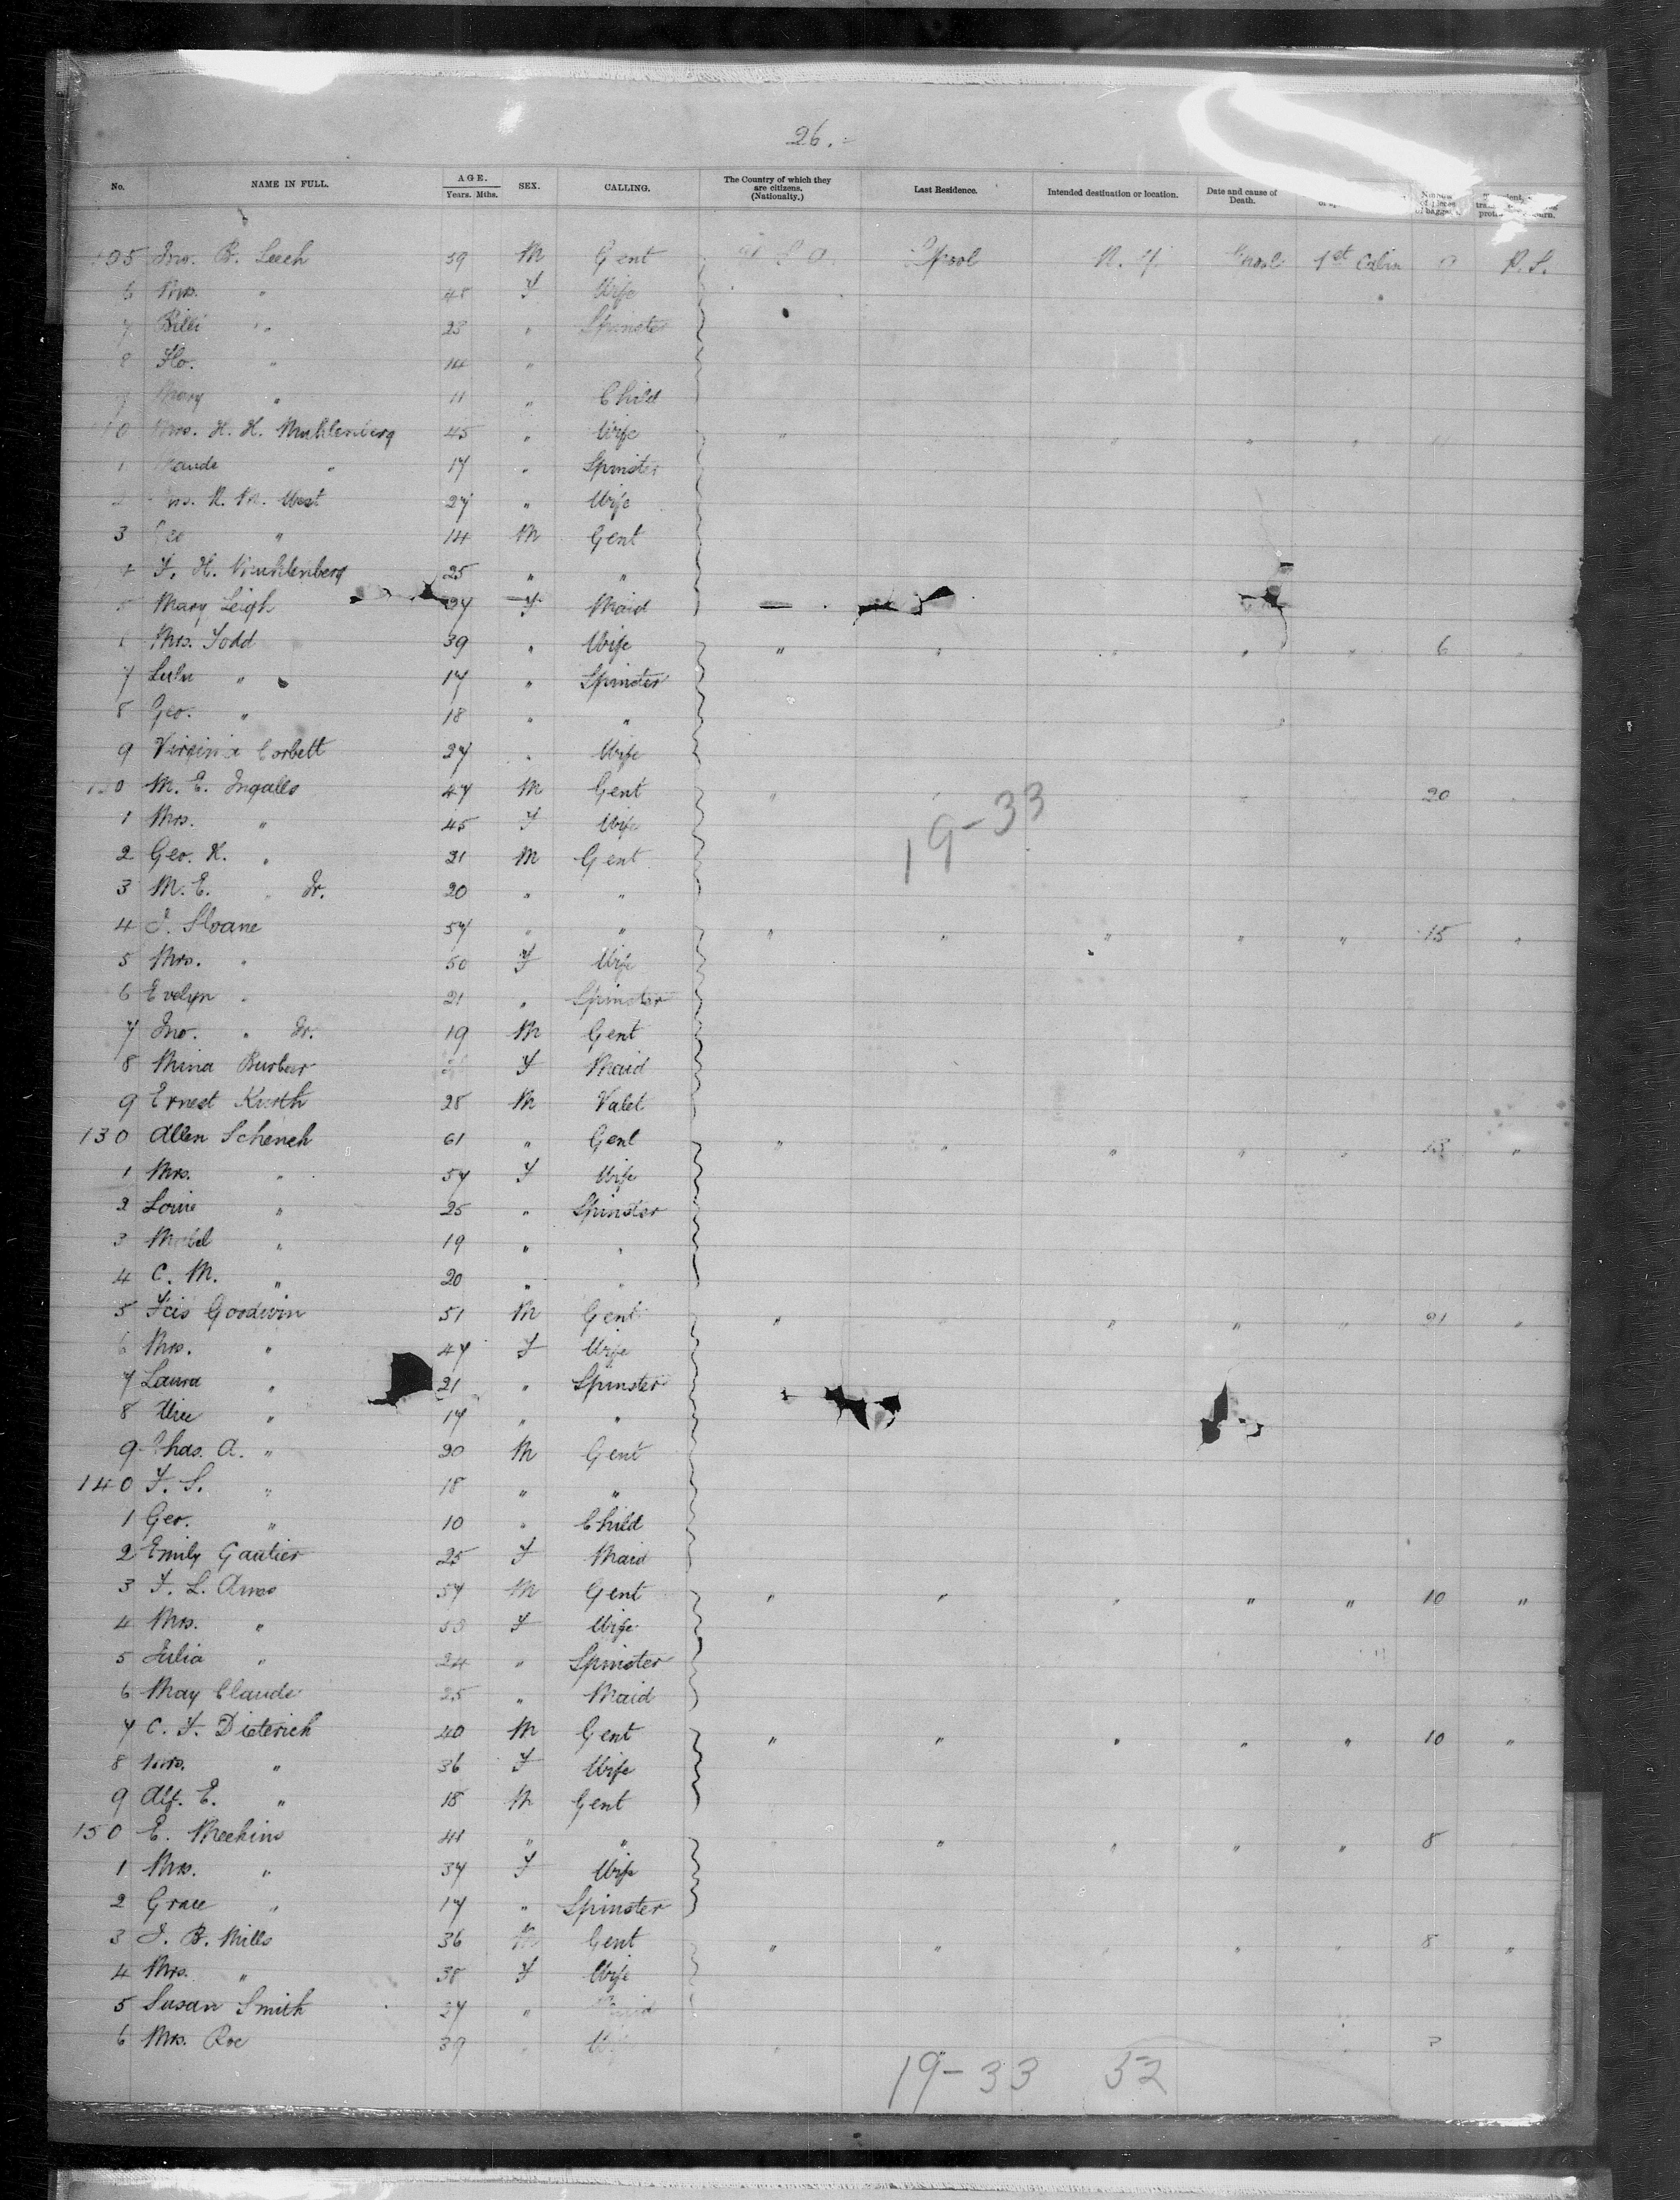 26.=
No. NAME IN FULL. AGE. Years. Mths. SEX. CALLING. The Country of which they are citizens. (Nationality.) Last Residence. Intended destination or location. Date and cause of Death. of pieces of baggage
05 Jno. B. Leech 59 M Gent U S A L'pool N. Y. L'pool 1st Cabin P. S.
6 Mrs. " 48 F Wife
7 Billi " 23 " Spinster
8 Flo. " 14 "
9 Mary " 11 " Child
10 Mrs. H. H. Muhlenberg 45 " Wife " " " " 11
1 Maude " 17 " Spinster
2 Mrs. R. M. West 27 " Wife
3 Geo " 14 M Gent
4 F. H. Muhlenberg 25 " "
5 Mary Leigh 27 F Maid
6 Mrs. Todd 39 " Wife " " " " " 6 "
7 Lulu " 17 " Spinster
8 Geo. " 18 " "
9 Virginia Corbett 27 " Wife
120 M. E. Ingalls 47 M Gent " " " 20 "
1 Mrs. " 45 F Wife
19-33
2 Geo. H. " 21 M Gent
3 M. E. " Jr. 20 " "
4 J. Sloane 57 " " " " " " " 15 "
5 Mrs. " 50 F Wife
6 Evelyn " 21 " Spinster
7 Jno. " Jr. 19 M Gent
8 Mina Burber F Maid
9 Ernest Kurth 28 M Valet
130 Allen Schench 61 " Gent " " " " " 13 "
1 Mrs. " 57 F Wife
2 Louie " 25 " Spinster
3 Mabel " 19 " "
4 C. M. " 20 " "
5 Fcis Goodwin 51 M Gent " " " " " 21 "
6 Mrs. " 47 F Wife
7 Laura " 21 " Spinster
8 " 17 " "
9 Chas. A. " 20 M Gent
140 F. S. " 18 " "
1 Geo. " 10 " Child
2 Emily Gautier 25 F Maid
3 F. L. Ames 57 M Gent " " " " " 10 "
4 Mrs. " 53 F Wife
5 Julia " 24 " Spinster
6 May Claude 25 " Maid
7 C. F. Dieterich 40 M Gent " " " " " 10 "
8 Mrs. " 36 F Wife
9 Alf. E. " 18 M Gent
150 E. Meekins 41 " " " " " " 8 "
1 Mrs. " 37 F Wife
2 Grace " 17 " Spinster
3 J. B. Mills 36 M Gent " " " " " 8 "
4 Mrs. " 38 F Wife
5 Susan Smith 27 " Maid
6 Mrs. Roe 39 " Wife
19-33 52